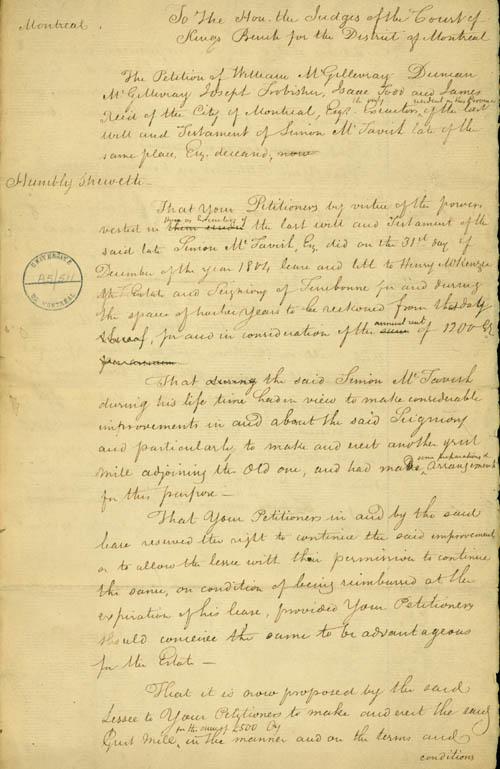 Montreal.
To The Hon. the Judges of the Court of
Kings Bench for the District of Montreal
The Petition of William McGillivray Duncan
McGillivray Joseph Frobisher, Isaac Todd and James
the only resident in this Province
Reid of the City of Montreal, Esqrs. Executors, of the last
will and Testament of Simon McTavish late of the
same place Esq. deceased, now
Humbly Sheweth
That Your Petitioners by virtue of the powers
vested in them under the last will and Testament of the
said late Simon McTavish, Esq. did on the 31st day of
December of the year 1804 lease and lett to Henry McKenzie
Estate and Seigniory of Terrebonne for and during
the space of twelve Years to be reckoned from the day
thereof, for and in consideration of the
annual rent
of 1200
per annum
That during the said Simon McTavish
during his life time had in view to make considerable
improvements in and about the said Seigniory
and particularly to make and erect another grist
mill adjoining the old one, and had made
some preparations &
Arrangements
for this purpose —
That Your Petitioners in and by the said
lease reserved the right to continue the said improvement
or to allow the lessee with their permission to continue
the same, on condition of being reimbursed at the
expiration of his lease, provided Your Petitioners
should conceive the same to be advantageous
for the Estate —
That it is now proposed by the said
Lessee to Your Petitioners to make and erect the said
for the sum of £500 Cy
Grist Mill, in the manner and on the terms and
conditions
UNIVERSITÉ
DE MONTRÉAL